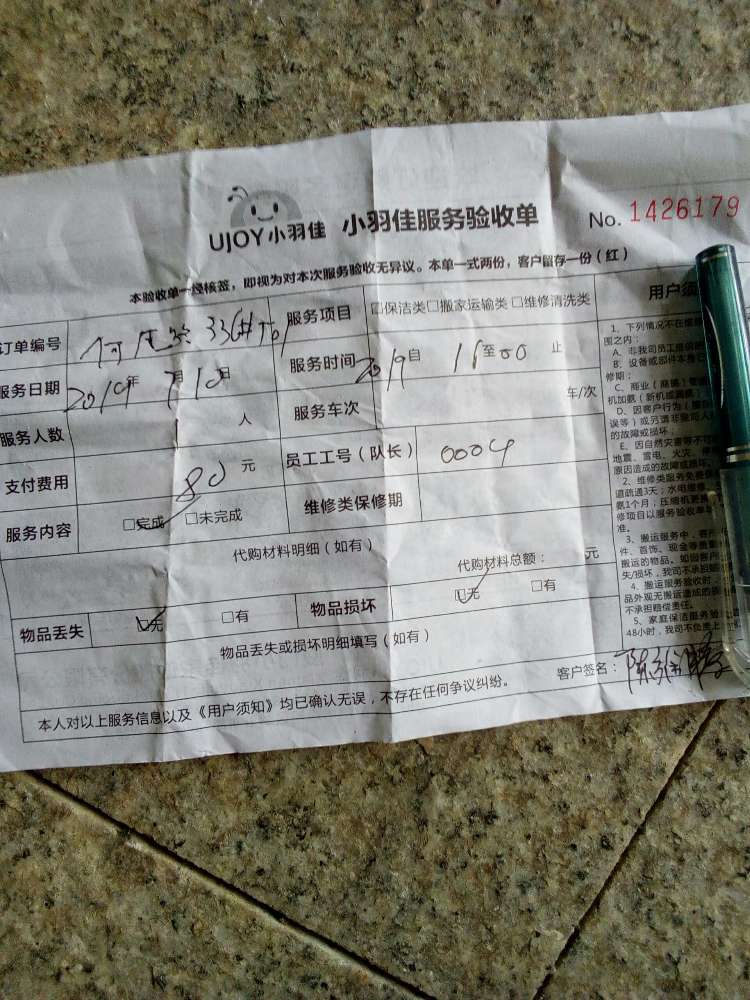 UJOY小羽佳 小羽佳服务验收单 No. 1426179
本验收单一经核签，即视为对本次服务验收无异议。本单一式两份，客户留存一份（红）
订单编号 336# 服务项目 □保洁类□搬家运输类□维修清洗类 用户须
服务日期 2019年 7月10日 服务时间 自 至 止
服务人数 人 服务车次 车/次
支付费用 80 元 员工工号（队长） 0004
服务内容 □完成 □未完成 维修类保修期
代购材料明细（如有）
代购材料总额： 元
物品丢失 □无 □有 物品损坏 □无 □有
物品丢失或损坏明细填写（如有）
客户签名：
本人对以上服务信息以及《用户须知》均已确认无误，不存在任何争议纠纷。
1、下列情况不在
围之内：
A、非我司员工
B、设备或部件本身
修期；
C、商业（商铺）
机加氨（新机或
D、因客户行为
误等）或另请非
的故障或损坏；
E、因自然灾害等不可
地震、雷电、火灾、
原因造成的故障或损坏
2、维修类服务免费
道疏通3天；水电维修
氨1个月；压缩机更换
修项目以服务验收单
准。
3、搬运服务中，
件、首饰、现金等贵重
搬运的物品。如因客户
失/损坏，我司不承担
4、搬运服务验收时，
品外观无搬运造成的
不承担赔偿责任。
5、家庭保洁服务验
48小时，我司不负责上